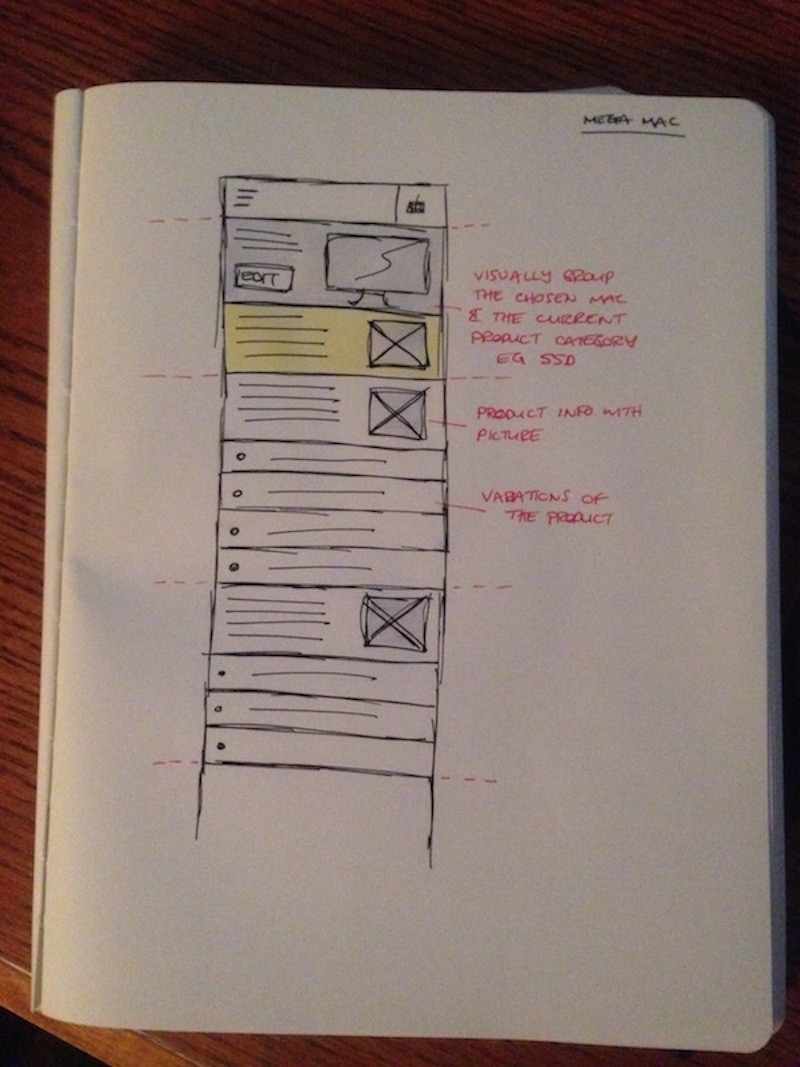 MEGA MAC
EDIT
VISUALLY GROUP
THE CHOSEN MAC
& THE CURRENT
PRODUCT CATEGORY
EG SSD
PRODUCT INFO WITH
PICTURE
VARATIONS OF
THE PRODUCT